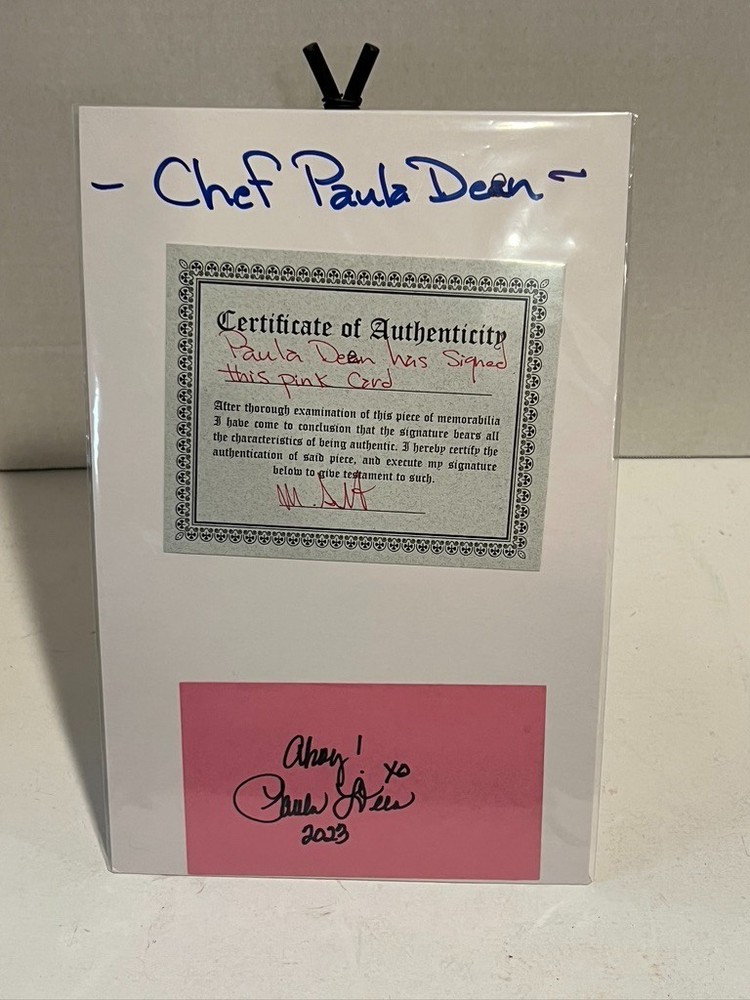 - Chef Paula Deen ~
Certificate of Authenticity
Paula Deen has Signed
this pink Card
After thorough examination of this piece of memorabilia
I have come to conclusion that the signature bears all
the characteristics of being authentic. I hereby certify the
authentication of said piece, and execute my signature
below to give testament to such.
Ahoy!
xo
Paula Deen
2023